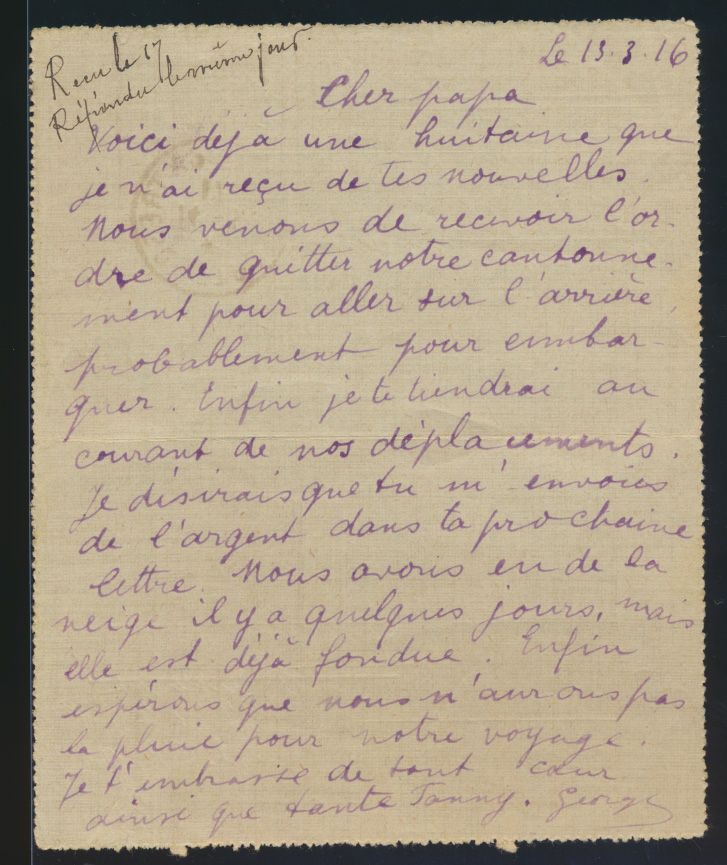 Recu le 17
Répondu le même jour.
Le 13.3.16
Cher papa
Voici déjà une huitaine que
je n'ai reçu de tes nouvelles.
Nous venons de recevoir l'or-
dre de quitter notre cantonne-
ment pour aller sur l'arrière,
probablement pour embar-
quer. Enfin je te tiendrai au
courant de nos déplacements.
Je désirais que tu m'envoies
de l'argent dans ta prochaine
lettre. Nous avons eu de la
neige il y a quelques jours, mais
elle est déjà fondue. Enfin
espérons que nous n'aurons pas
la pluie pour notre voyage.
Je t'embrasse de tout cœur
ainsi que tante Fanny. Georges